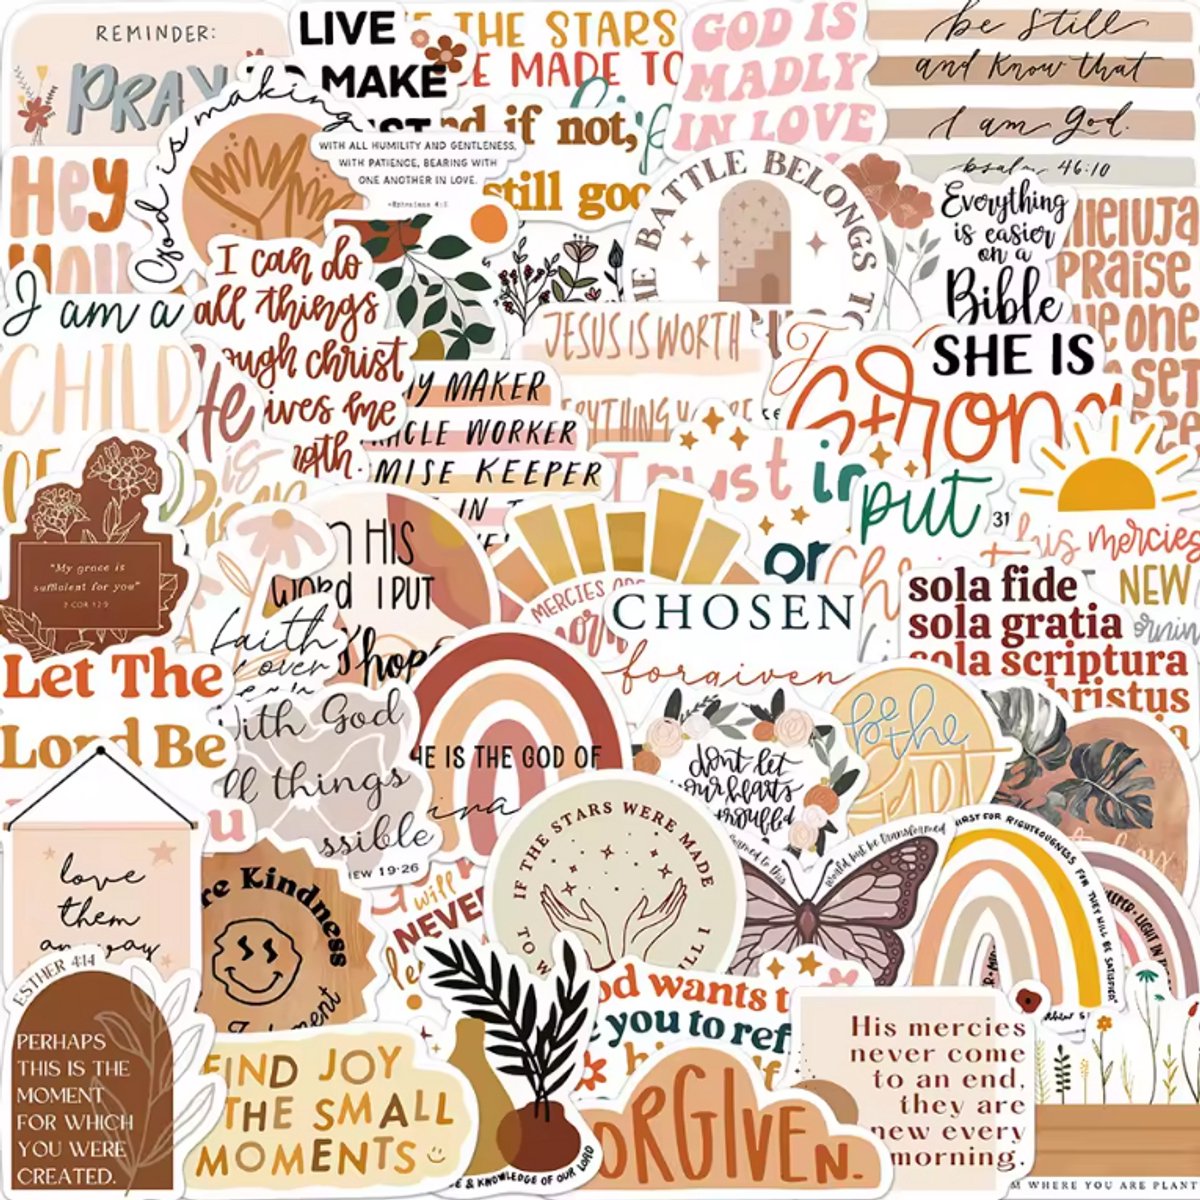 REMINDER:
PRAY
LIVE
MAKE
THE STARS
MADE TO
if not,
still
GOD IS
MADLY
IN LOVE
be still
and know that
I am God.
psalm 46:10
God is making
WITH ALL HUMILITY AND GENTLENESS,
WITH PATIENCE, BEARING WITH
ONE ANOTHER IN LOVE.
-Ephesians 4:2
Hey
BATTLE BELONGS
Everything
is easier
on a
Bible
PRAISE
ONE
SET
I am a
CHILD
OF
I can do
all things
christ
me
He
is
MAKER
WORKER
KEEPER
IN
JESUS IS WORTH
SHE IS
Strong
Trust in
put
31
his mercies
NEW
"My grace is
sufficient for you"
2 COR 12:9
HIS
WORD I PUT
hope
faith
over
MERCIES ARE
CHOSEN
forgiven
or
sola fide
sola gratia
sola scriptura
Let The
Lord Be
With God
all things
19-26
HE IS THE GOD OF
don't let
your hearts
be the
IF THE STARS WERE MADE
TO
I
will
NEVER
would but be transformed
to this
FOR RIGHTEOUSNESS FOR THEY WILL BE SATISFIED
LIGHT IN
love
them
anyway
Kindness
ESTHER 4:14
PERHAPS
THIS IS THE
MOMENT
FOR WHICH
YOU WERE
CREATED.
FIND JOY
THE SMALL
MOMENTS
& KNOWLEDGE OF OUR LORD
wants
you to
FORGIVEN.
His mercies
never come
to an end,
they are
new every
morning.
WHERE YOU ARE